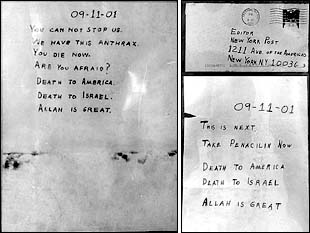 09-11-01
YOU CAN NOT STOP US.
WE HAVE THIS ANTHRAX.
YOU DIE NOW.
ARE YOU AFRAID?
DEATH TO AMERICA.
DEATH TO ISRAEL.
ALLAH IS GREAT.
EDITOR
NEW YORK POST
1211 AVE. OF THE AMERICAS
NEW YORK NY 10036
09-11-01
THIS IS NEXT
TAKE PENACILIN NOW
DEATH TO AMERICA
DEATH TO ISRAEL
ALLAH IS GREAT